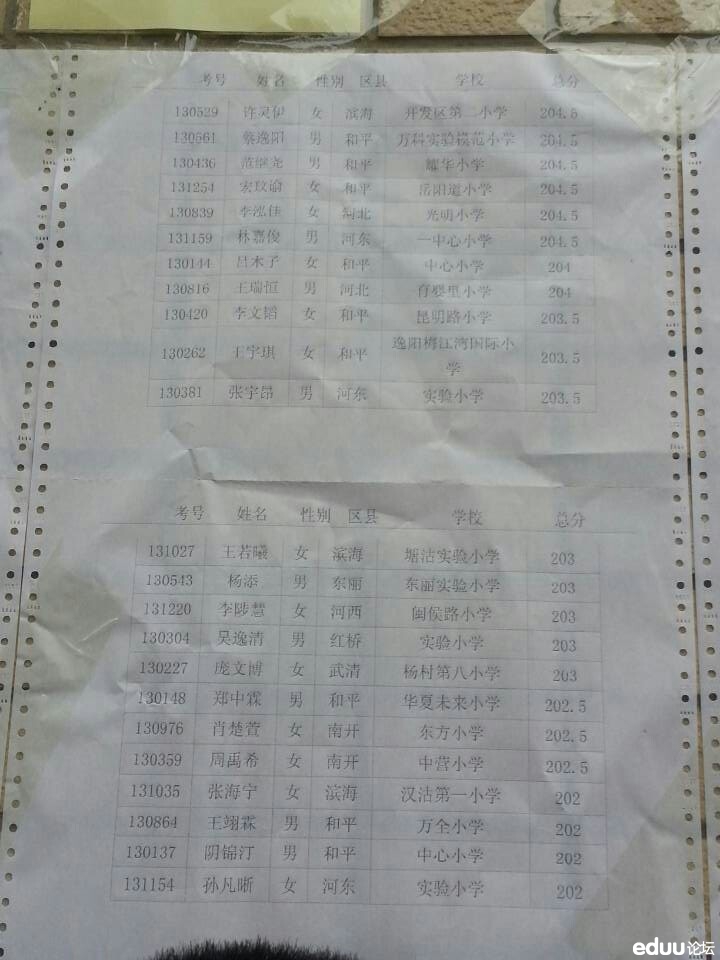 考号 姓名 性别 区县 学校 总分
130529 许灵伊 女 滨海 开发区第二小学 204.5
130561 蔡逸阳 男 和平 万科实验模范小学 204.5
130436 范继尧 男 和平 耀华小学 204.5
131254 宏玟谕 女 和平 岳阳道小学 204.5
130839 李泓佳 女 河北 光明小学 204.5
131159 林嘉俊 男 河东 一中心小学 204.5
130144 吕木子 女 和平 中心小学 204
130816 王瑞恒 男 河北 育婴里小学 204
130420 李文韬 女 和平 昆明路小学 203.5
130262 王宇琪 女 和平 逸阳梅江湾国际小学 203.5
130381 张宇昂 男 河东 实验小学 203.5
考号 姓名 性别 区县 学校 总分
131027 王若曦 女 滨海 塘沽实验小学 203
130543 杨添 男 东丽 东丽实验小学 203
131220 李陟慧 女 河西 闽侯路小学 203
130304 吴逸清 男 红桥 实验小学 203
130227 庞文博 女 武清 杨村第八小学 203
130148 郑中霖 男 和平 华夏未来小学 202.5
130976 肖楚萱 女 南开 东方小学 202.5
130359 周禹希 女 南开 中营小学 202.5
131035 张海宁 女 滨海 汉沽第一小学 202
130864 王翊霖 男 和平 万全小学 202
130137 阴锦汀 男 和平 中心小学 202
131154 孙凡晰 女 河东 实验小学 202
eduu论坛